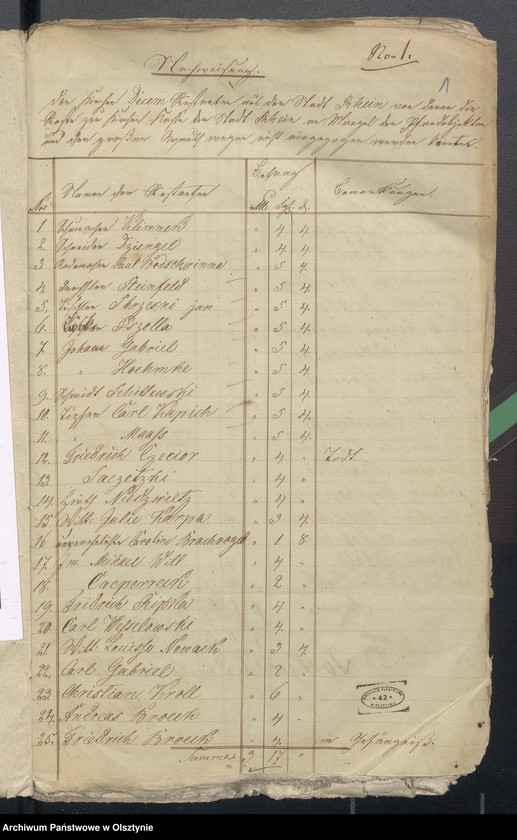 No 1.
Nachweisung.
1
der Kirchen Decem Restanten aus der Stadt Rhein von denen die
Reste zur Kirchen Kasse der Stadt Rhein in Mangel der Pfandobjekten
und der großen Armuth wegen nicht eingezogen werden konnten.
Nro Namen der Restanten Betrag Bemerkungen.
Sgr.
1. Schumacher Klimmek " 4 4.
2. Schneider Dziengel " 4 4.
3. Rademacher Paul " 5 4.
4. Drechsler Steinfeld " 5 4.
5. Tischler Skrzesni jun " 5 4.
6. Pszolla " 5 4.
7. Johann Gabriel " 5 4.
8. " Hoehmke " 5 4.
9. Schmidt " 5 4.
10. Töpfer Carl Kapich " 5 4.
11. " Maaß " 5 4.
12. Friedrich Czecior " 4 " Todt.
13. Saczitzki " 4 "
14. Niedzwietz " 4 "
15. Witt: Julie Karpa " 3 4.
16. unverehelichte Carolin Brachvogel " 1 8.
17. Mikael Will " 4 "
18. Caspereeck " 2 "
19. Fridrich " 4 "
20. Carl Wesselowski " 4 "
21. Witt: Louise Nowack " 3 7.
22. Carl Gabriel " 2 "
23. Christian Kroll " 6 "
24. Andreas Broeck " 4 "
25. Friedrich Broeck " 4. " in Gefängniß.
Summa 3 17 "
42
Archiwum Państwowe w Olsztynie